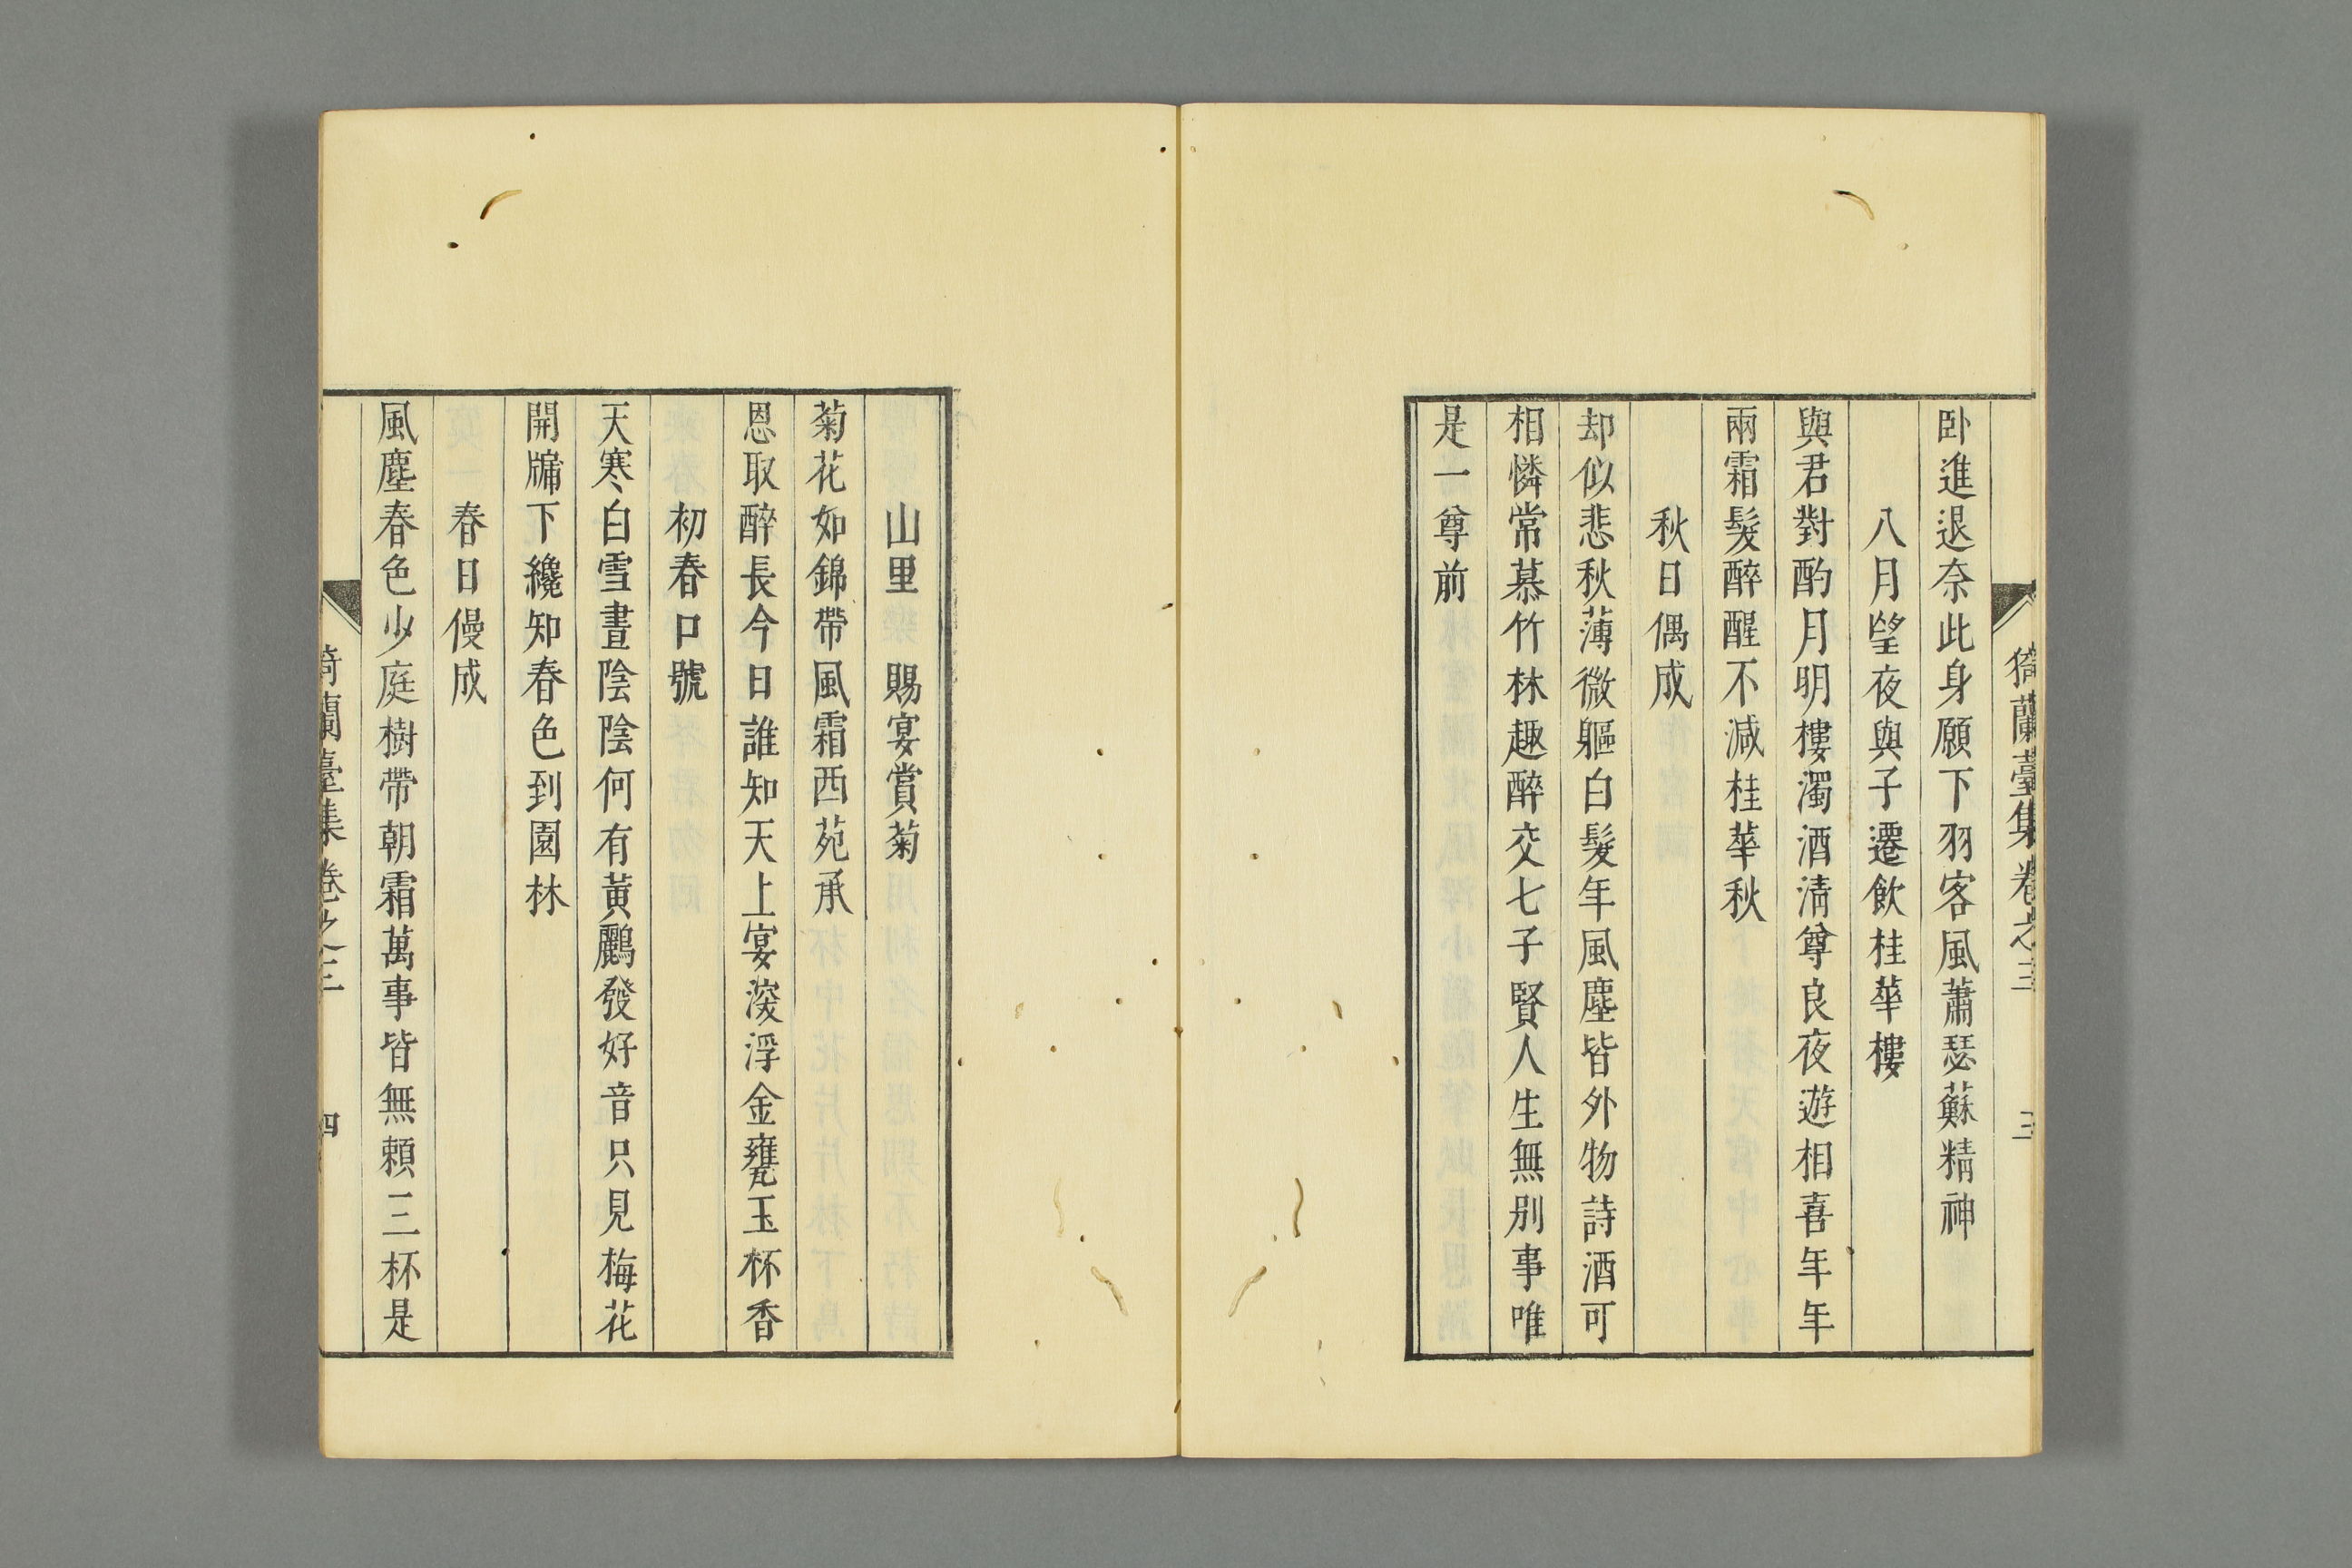 猗蘭臺集卷之三 三
卧進退奈此身願下羽客風蕭瑟蘇精神
八月望夜與子遷飲桂華樓
與君對酌月明樓濁酒淸尊良夜遊相喜年年
兩霜髮醉醒不減桂華秋
秋日偶成
却似悲秋薄微軀白髮年風塵皆外物詩酒可
相憐常慕竹林趣醉交七子賢人生無別事唯
是一尊前
山里 賜宴賞菊
菊花如錦帶風霜西苑承
恩取醉長今日誰知天上宴深浮金甕玉杯香
初春口號
天寒白雪晝陰陰何有黃鸝發好音只見梅花
開牖下纔知春色到園林
春日偶成
風塵春色少庭樹帶朝霜萬事皆無賴三杯是
猗蘭臺集卷之三 四